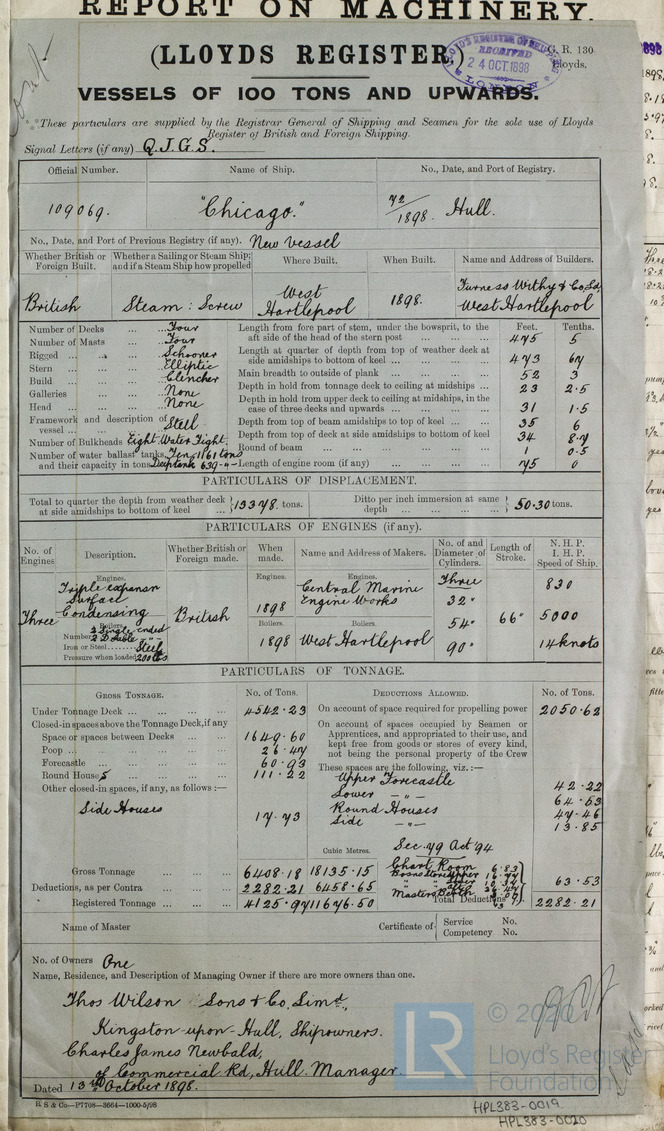 REPORT ON MACHINERY.
(LLOYDS REGISTER.)
G. R. 130
Lloyds.
LLOYD'S REGISTER OF SHIPPING
RECEIVED
24 OCT. 1898
LONDON
VESSELS OF 100 TONS AND UPWARDS.
These particulars are supplied by the Registrar General of Shipping and Seamen for the sole use of Lloyds
Register of British and Foreign Shipping.
Signal Letters (if any) Q.J.G.S.
Official Number. Name of Ship. No., Date, and Port of Registry.
109069. "Chicago." 72/1898. Hull.
No., Date, and Port of Previous Registry (if any). New Vessel
Whether British or Foreign Built. Whether a Sailing or Steam Ship; and if a Steam Ship how propelled Where Built. When Built. Name and Address of Builders.
British Steam: Screw West Hartlepool 1898. Furness Withy & Co, Ld, West Hartlepool
Number of Decks ... ... Four
Number of Masts ... ... Four
Rigged ... ... Schooner
Stern ... ... Elliptic
Build ... ... Clencher
Galleries ... ... None
Head ... ... None
Framework and description of vessel ... Steel
Number of Bulkheads Eight Water Tight.
Number of water ballast tanks, and their capacity in tons Ten 1161 tons Deep tank 639 - " -
Feet. Tenths.
Length from fore part of stem, under the bowsprit, to the aft side of the head of the stern post ... ... ... 475 5
Length at quarter of depth from top of weather deck at side amidships to bottom of keel ... ... ... 473 67
Main breadth to outside of plank ... ... ... 52 3
Depth in hold from tonnage deck to ceiling at midships ... 23 2.5
Depth in hold from upper deck to ceiling at midships, in the case of three decks and upwards ... ... ... 31 1.5
Depth from top of beam amidships to top of keel ... ... 35 6
Depth from top of deck at side amidships to bottom of keel 34 8.7
Round of beam ... ... ... 1 0.5
Length of engine room (if any) ... ... ... 75 0
PARTICULARS OF DISPLACEMENT.
Total to quarter the depth from weather deck at side amidships to bottom of keel ... } 13378. tons. Ditto per inch immersion at same depth ... ... } 50.30 tons.
PARTICULARS OF ENGINES (if any).
No. of Engines Description. Whether British or Foreign made. When made. Name and Address of Makers. No. of and Diameter of Cylinders. Length of Stroke. N. H. P. I. H. P. Speed of Ship.
Engines. Engines. Engines.
Three Triple expansn Surface Condensing British 1898 Central Marine Engine Works Three 32" 54" 90" 66" 830 5000 14 knots
Boilers. Boilers. Boilers.
Number 2 Single ended 2 Double " " 1898 West Hartlepool
Iron or Steel Steel
Pressure when loaded 200 lbs
PARTICULARS OF TONNAGE.
GROSS TONNAGE. No. of Tons. DEDUCTIONS ALLOWED. No. of Tons.
Under Tonnage Deck ... ... ... 4542.23
Closed-in spaces above the Tonnage Deck, if any
Space or spaces between Decks ... ... 1649.60
Poop ... ... ... 26.47
Forecastle ... ... ... 60.93
Round Houses ... ... ... 111.22
Other closed-in spaces, if any, as follows :—
Side Houses 17.73
On account of space required for propelling power 2050.62
On account of spaces occupied by Seamen or Apprentices, and appropriated to their use, and kept free from goods or stores of every kind, not being the personal property of the Crew
These spaces are the following, viz. :—
Upper Forecastle 42.22
Lower - " - 64.53
Round Houses 47.46
Side - " - 13.85
Cubic Metres.
Sec. 79 Act '94
Gross Tonnage ... ... 6408.18 18135.15
Deductions, as per Contra ... ... 2282.21 6458.65
Registered Tonnage ... ... 4125.97 11676.50
Chart Room 6.83
Bosns Store Upper
Masters Berth
63.53
Total Deductions 2282.21
Name of Master Certificate of { Service No. Competency No.
No. of Owners One
Name, Residence, and Description of Managing Owner if there are more owners than one.
Thos Wilson Sons & Co, Limd,
Kingston-upon-Hull, Shipowners.
Charles James Newbald,
of Commercial Rd, Hull. Manager.
Dated 13th October 1898.
R. S & Co—P7708—3664—1000-5/98
LR
© 2020
Lloyd's Register
Foundation
HPL383-0019
HPL383-0020